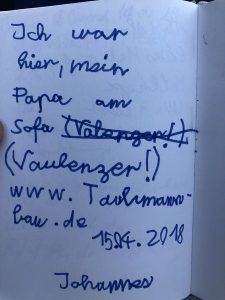 Ich war
hier, mein
Papa am
Sofa (Valenzer!)
(Vaulenzer!)
www.Tachmann-
bau.de
15.04.2018
Johannes